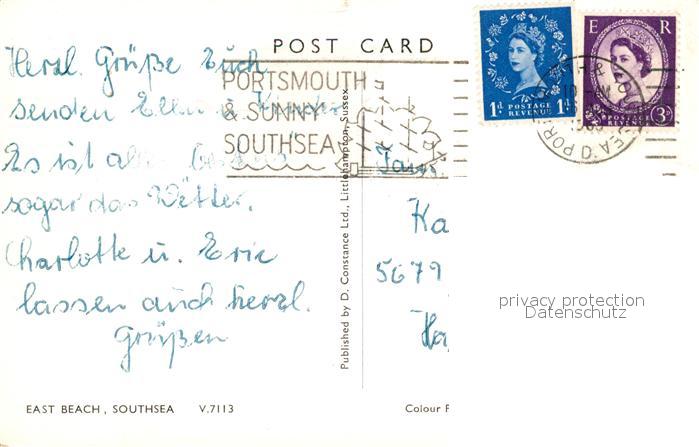 POST CARD
Herzl. Grüße Euch
senden Ellen u. Kinder
Es ist alles bestens
sogar das Wetter.
Charlotte u. Eric
lassen auch herzl.
Grüßen
PORTSMOUTH
& SUNNY
SOUTHSEA
1d POSTAGE REVENUE 1d
E R
POSTAGE REVENUE 3d
10 - AM
Published by D. Constance Ltd., Littlehampton, Sussex.
Fam.
Ka
5679
EAST BEACH, SOUTHSEA V.7113
Colour P
privacy protection
Datenschutz